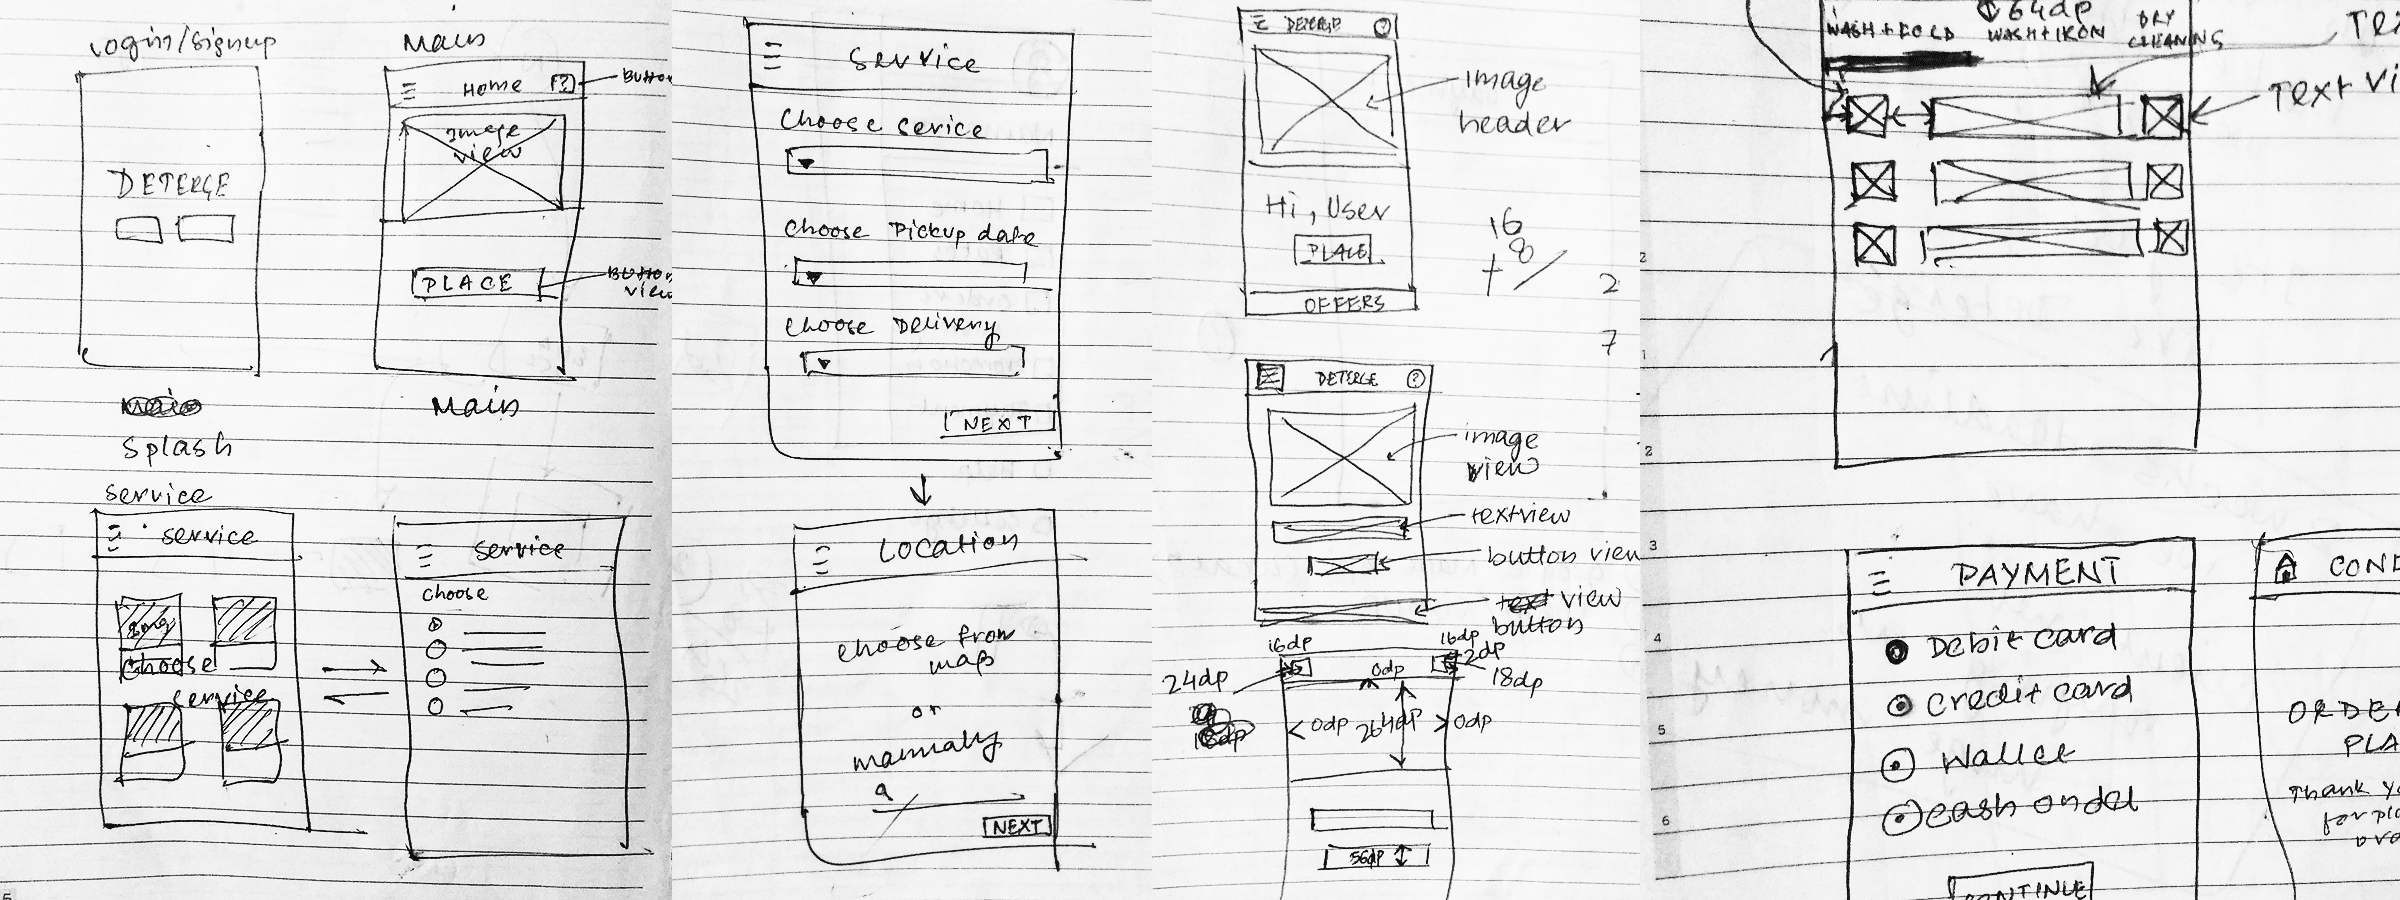 Login/Signup
DETERGE
Splash
Main
Home
Image
view
PLACE
view
Main
Service
Service
Img
Choose
service
Service
Choose
Service
Choose Service
Choose Pickup date
Choose Delivery
NEXT
LOCATION
choose from
map
or
manually
NEXT
DETERGE
?
image
header
Hi, User
PLACE
OFFERS
16
+8
2
7
DETERGE
?
image
view
textview
button view
view
button
16dp
16dp
2dp
24dp
0dp
18dp
0dp
264dp
0dp
56dp
64dp
WASH+FOLD
WASH+IRON
DRY
CLEANING
1
2
3
4
5
6
PAYMENT
Debit card
Credit card
Wallet
cash on del
CONTINUE
Thank